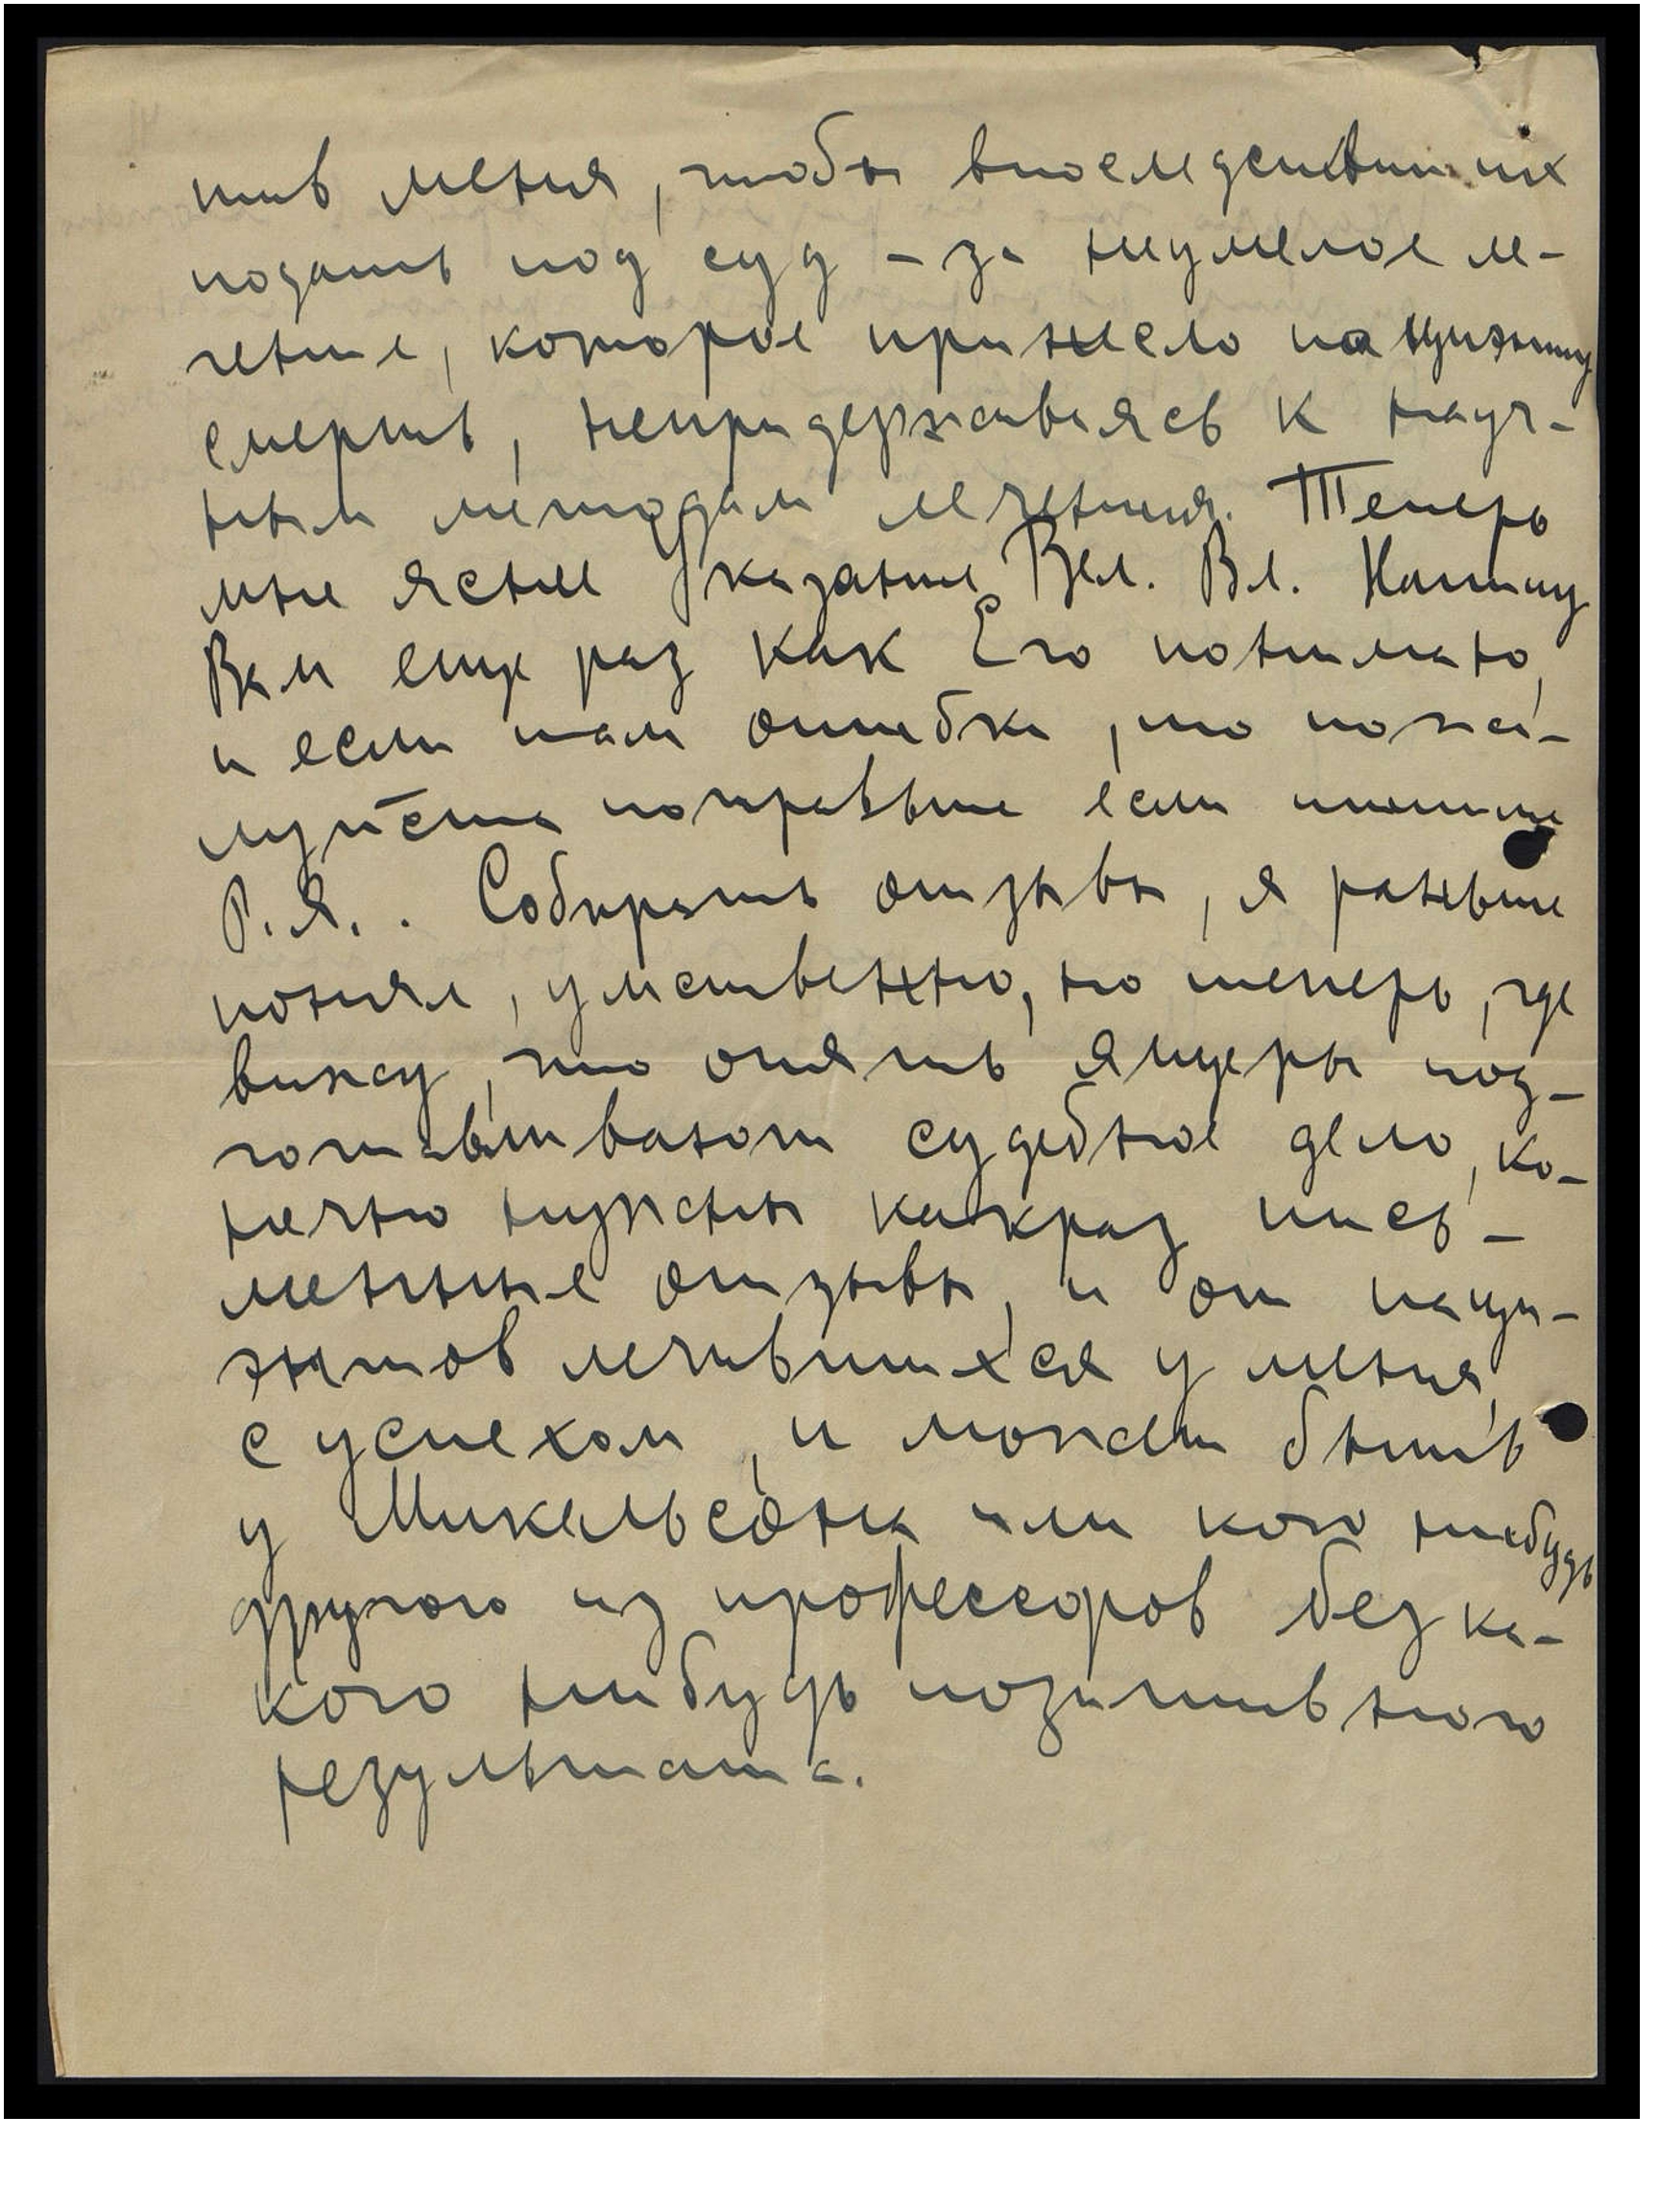 тив меня, чтобы впоследствии их
подать под суд – за неумелое ле-
чение, которое принесло пациэнту
смерть, непридерживаясь к науч-
ным методам лечения. Теперь
мне яснее Указание Вел. Вл. Напишу
Вам еще раз как Его понимаю,
и если там ошибки, то пожа-
луйста поправьте если пишите
Р.Я.. Собирать отзывы, я раньше
понял, умственно, но теперь, где
вижу, что опять ящеры под-
готавливают судебное дело, ко-
нечно нужны какраз пись-
менные отзывы, и от паци-
энтов лечившихся у меня,
с успехом, и может быть
у Микельсона или кого нибудь
другого из профессоров без ка-
кого нибудь позитивного
результата.